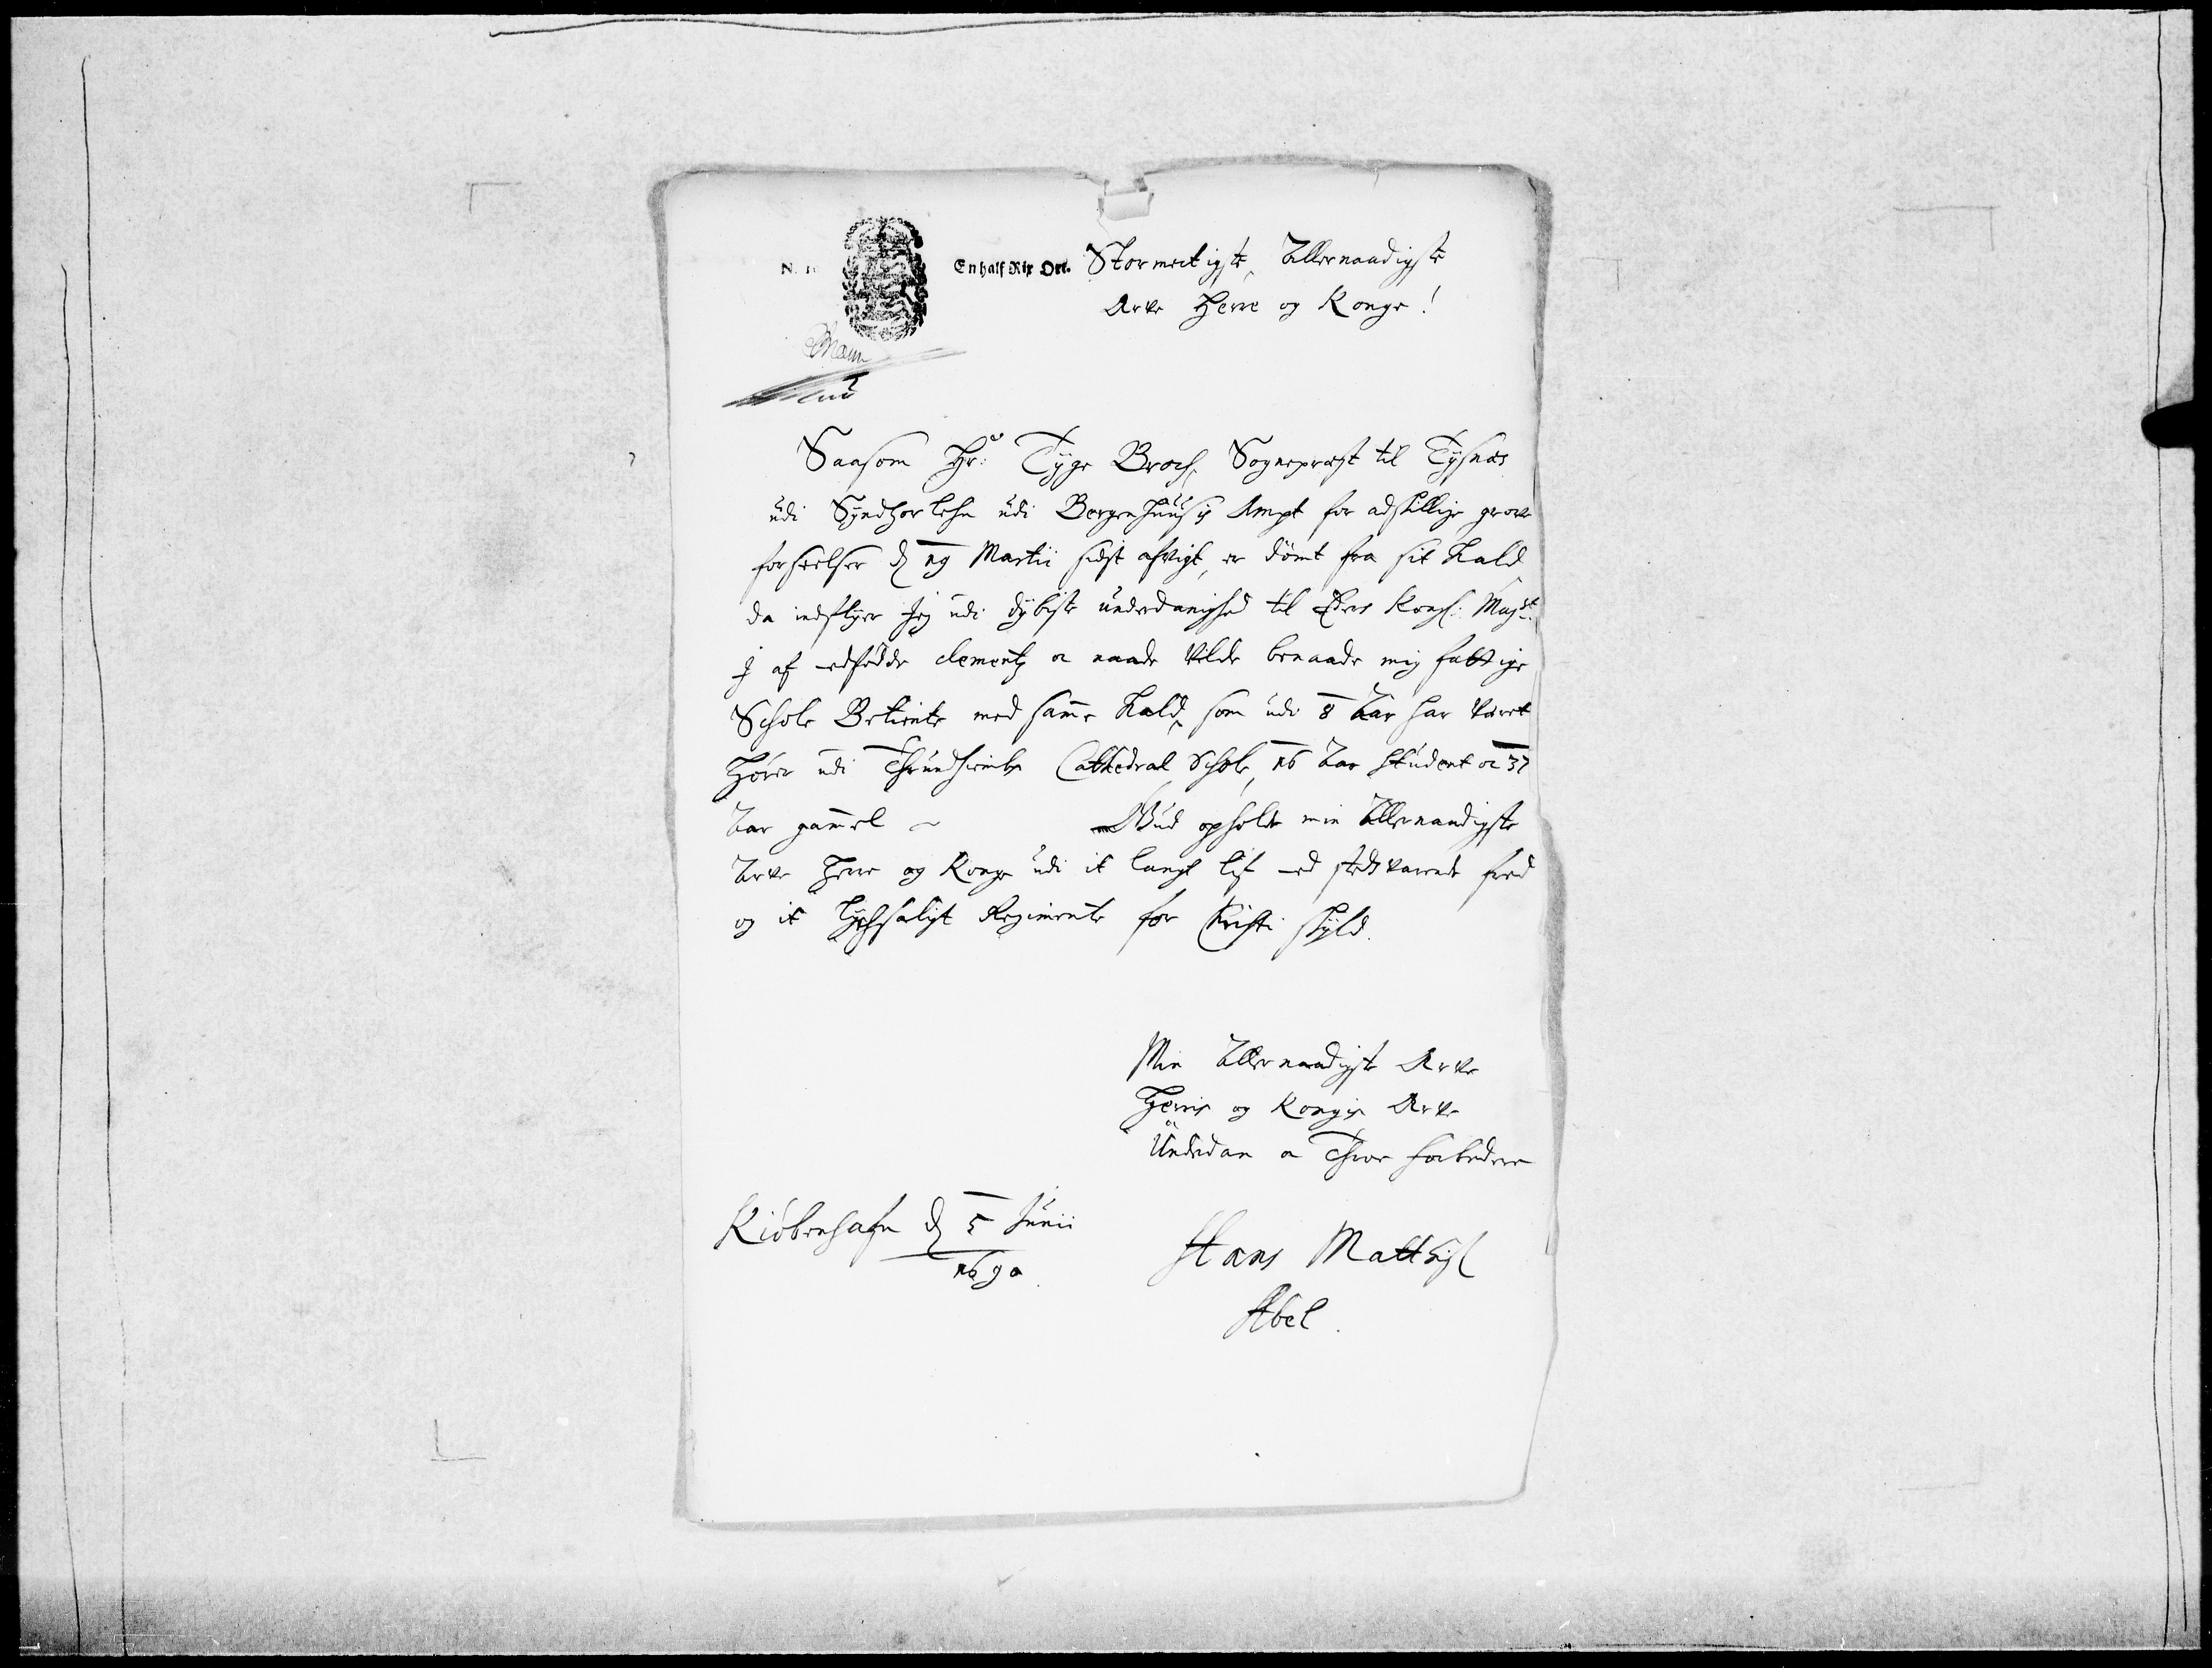 N. 1.
En half Rix Ort. Stormectigste, Allernaadigste
Arve Herre og Konge!
Saasom Hr: Tyge Broch, Sognepræst til Tysnæs
udi Syndhorlehn udi Bergenhuusis Ampt for adskillige grove
forseelser d 19 Martii sidst afvigt, er dömt fra sit Kald
da indflyer Jeg udi dybiste underdanighed til Eders Kongl: Mayst:
J af medfödde clementz oc naade vilde benaade mig fattige
Schole Betiente med samme Kald, som udi 8 Aar har været
Hörer udi Thrundhiembs Cathedral Schole, 16 Aar Student oc 37
Aar gammel ~ Gud opholde min Allernaadigste
Arve Herre og Konge udi it langt lif med stedsvarende fred
og it lychsaligt Regimente for Christi skyld.
Min Allernaadigste Arve
Herris og Kongis Arve
Underdan oc Throe forbedere
Kiöbenhafn d 5 Junii
1690.
Hans Matthisl
Abel.